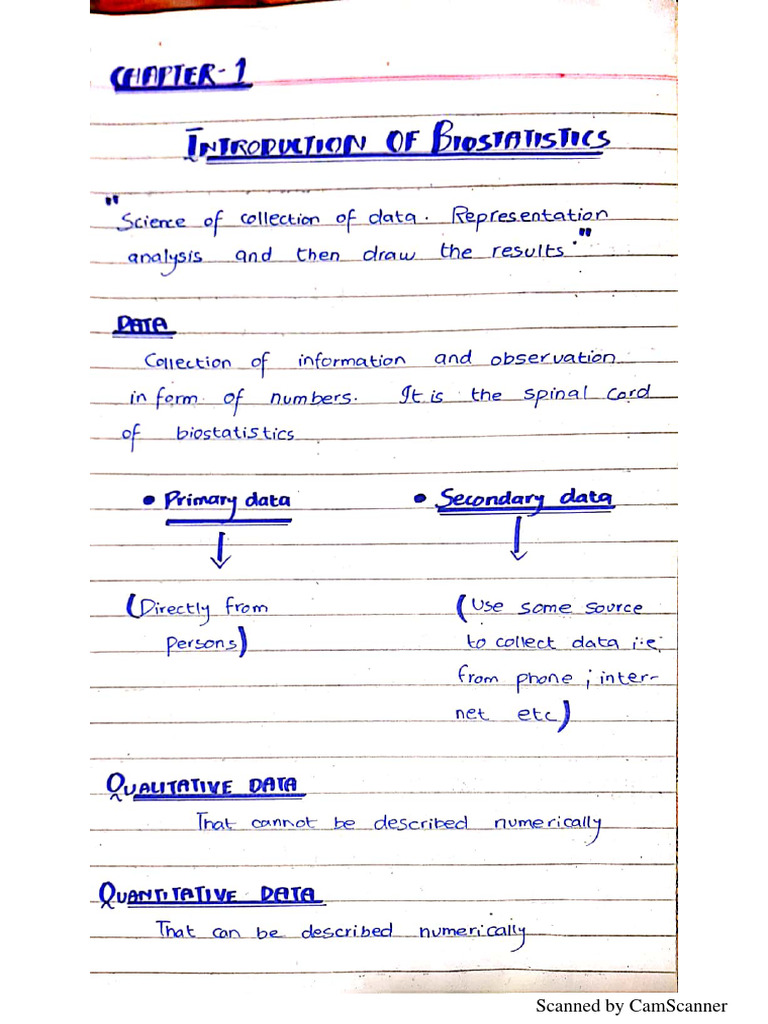 CHAPTER-1
INTRODUCTION OF BIOSTATISTICS
"Science of collection of data. Representation
analysis and then draw the results."
DATA
Collection of information and observation
in form of numbers. It is the spinal cord
of biostatistics
• Primary data
• Secondary data
(Directly from
persons)
(Use some source
to collect data i.e;
from phone ; inter-
net etc)
QUALITATIVE DATA
That cannot be described numerically
QUANTITATIVE DATA
That can be described numerically
Scanned by CamScanner